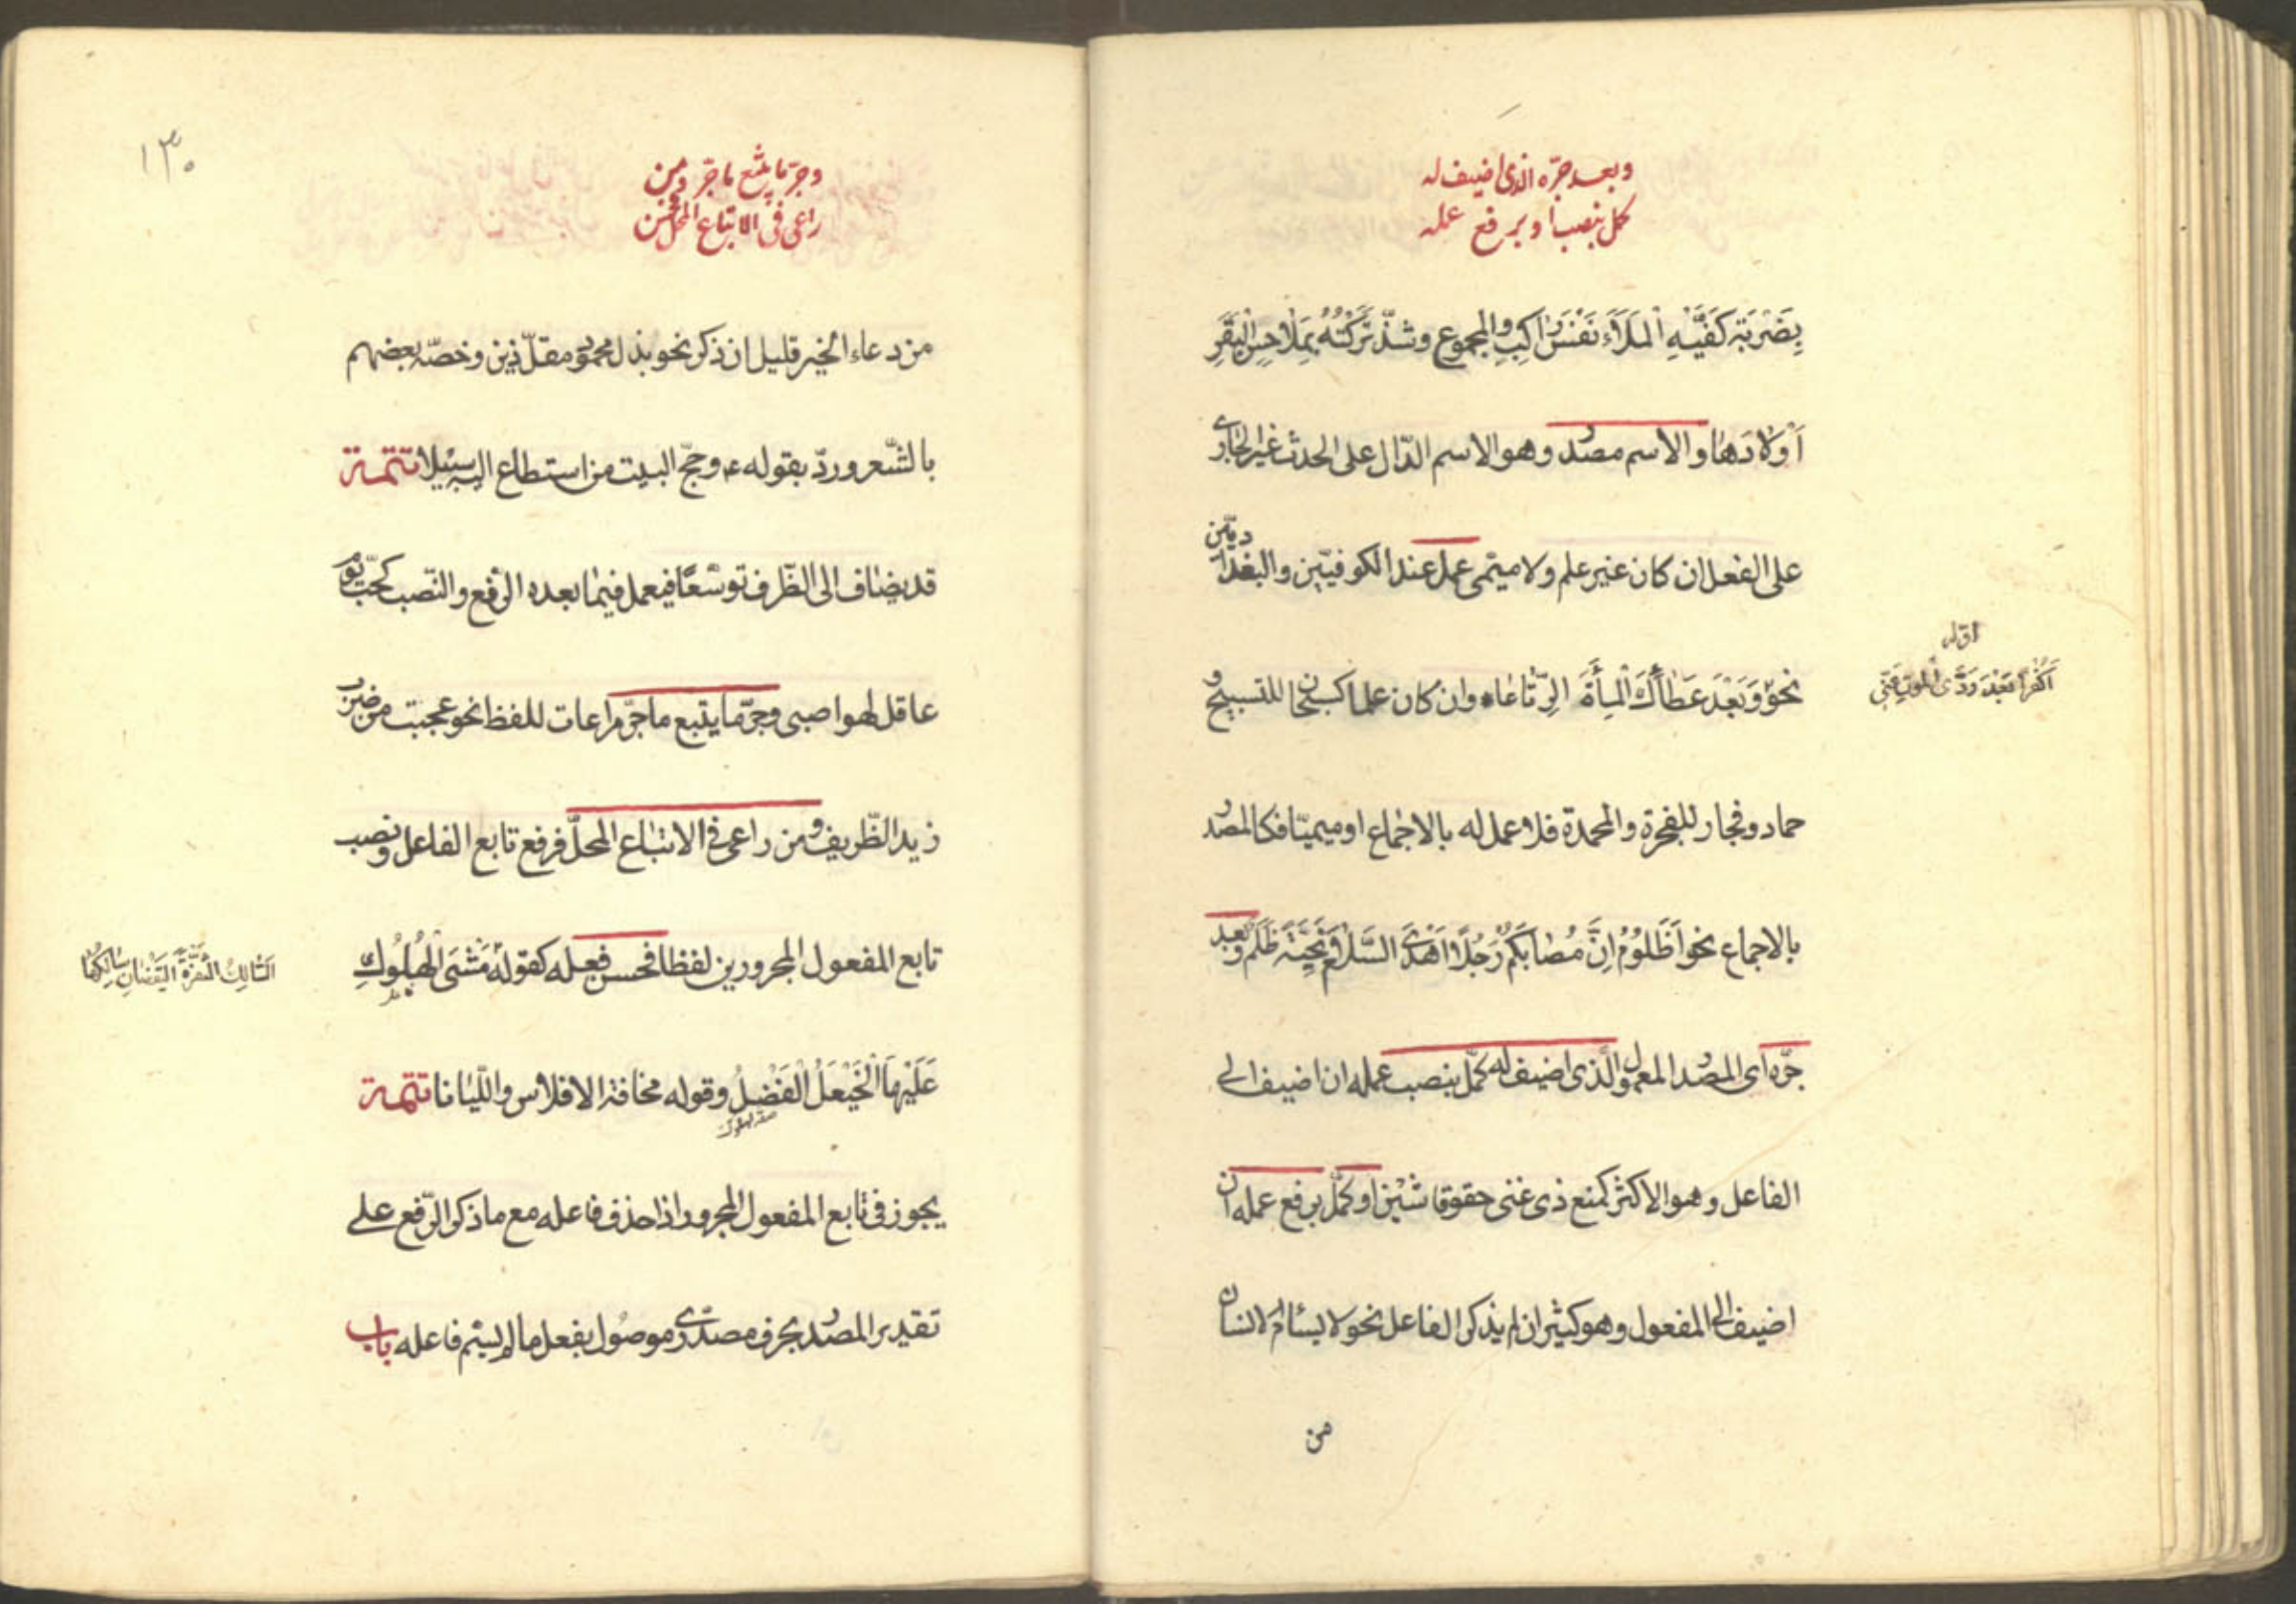 وبعد جرّه الذى اضيف له
كمل بنصب او برفع عمله
بِضَرْبَةِ كَفَّيْهِ الْمَلَأَ نَفْسَ رَاكِبِ والمجموع وشذّ تَرَكْتُهُ بِمَلاحِسِ الْبَقَرِ
اَوْلادَها والاسم مصدر وهو الاسم الدّال على الحدث غير الجارى
على الفعل ان كان غير علم ولا ميمى عمل عند الكوفيّين والبغداديّين
نحو وَبَعْدَ عَطائِكَ الْمِأَةَ الرِّتاعاء وان كان علما كسبحان للتسبيح و
اوّله
اَكُفْراً بَعْدَ رَدَّى الْمَوْتِ عَنّى
حماد وفجار للفجرة والمحمدة فلا عمل له بالاجماع او ميميّا فكالمصدر
بالاجماع نحو اَظَلُوْمُ اِنَّ مُصابَكُمْ رَجُلاً اَهْدَى السَّلامَ تَحِيَّةً ظُلْمُ وبعد
جرّه اى المصدر المعمول الّذى اضيف له كمّل بنصب عمله ان اضيف الى
الفاعل وهو الاكثر كمنع ذى غنى حقوقا شَيْن او كمّل برفع عمله ان
اضيف الى المفعول وهو كثير ان لم يذكر الفاعل نحو لا يسئام الانسان
من
١٣٠
وجرّ ما يتبع ما جرّ ومن
راعى فى الاتباع المحل فحسن
من دعاء الخير قليل ان ذكر نحو بذل مجهود مقلّ زين وخصّه بعضهم
بالشّعر وردّ بقوله ء وحجّ البيت من استطاع اليه سبيلا تتمة
قد يضاف الى الظّرف توسّعًا فيعمل فيما بعده الرّفع والنّصب كحبّ يوم
عاقل لهوا صبى وجرّ ما يتبع ما جرّ مراعات للفظ نحو عجبت من ضرب
زيد الظّريف ومن راعى فى الاتباع المحلّ فرفع تابع الفاعل ونصب
تابع المفعول المجرورين لفظا فحسن فعله كقوله مَشْىَ الْهَلُوْكِ
السّالِكُ الثُّغْرَةَ الْيَقْظانَ سالِكُها
عَلَيْهَا الْخَيْعَلُ الْفُضُلُ وقوله مخافة الافلاس واللّيانا تتمة
يجوز فى تابع المفعول المجرور اذا حذف فاعله مع ما ذكر الرّفع على
تقدير المصدر بحرف مصدرى موصول بفعل ما لم يسمّ فاعله باب